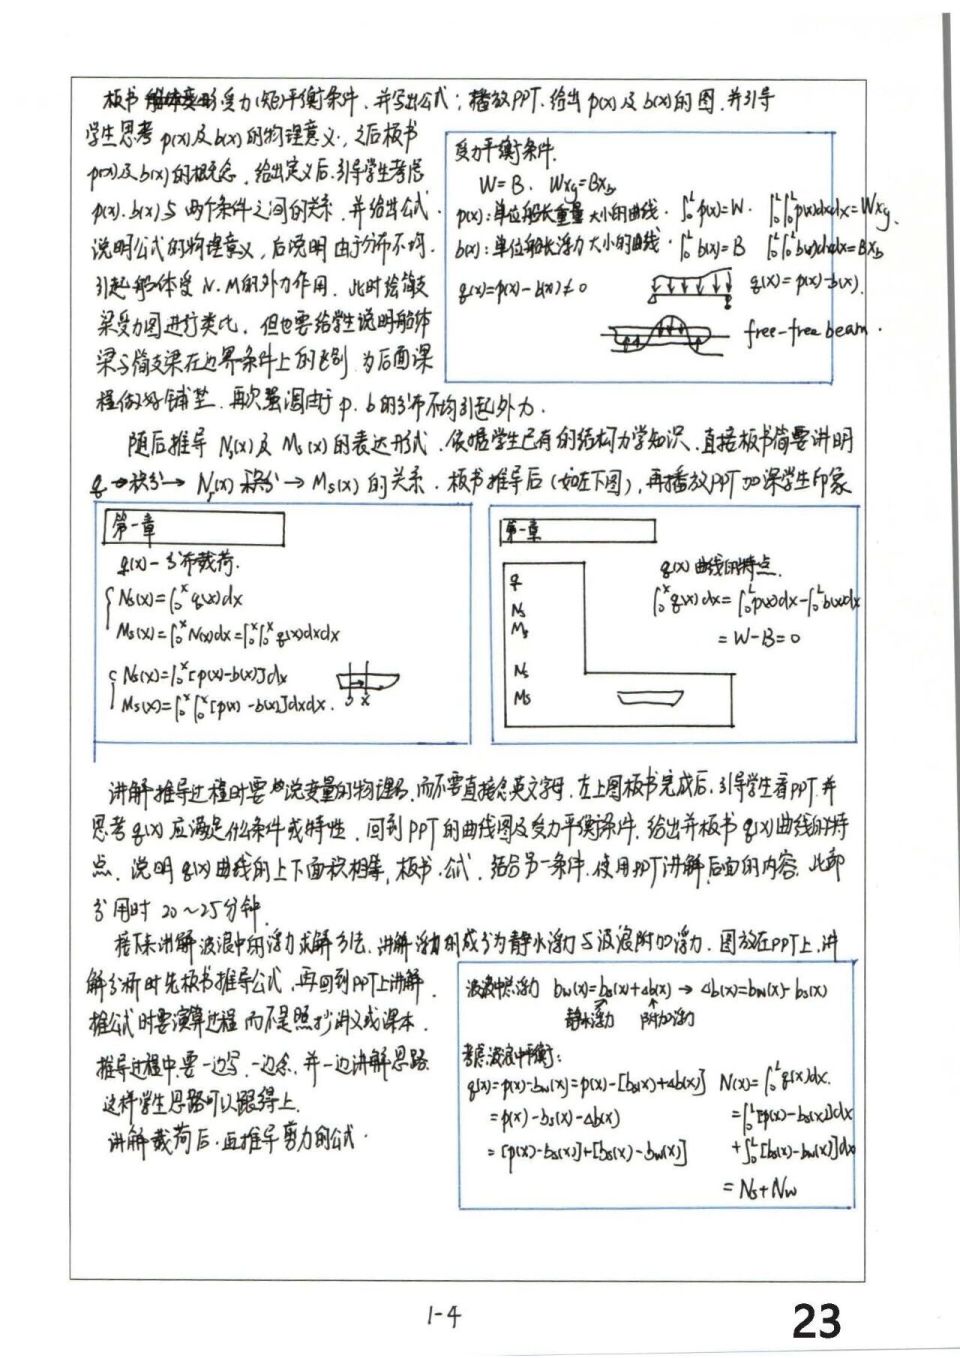 板书 受力(矩)平衡条件，并写出公式；播放PPT，给出p(x)及b(x)的图，并引导
学生思考p(x)及b(x)的物理意义，之后板书
p(x)及b(x)的概念，给出定义后，引导学生考虑
p(x)、b(x)与两个条件之间的关系，并给出公式，
说明公式的物理意义，后说明由于分布不均，
引起船体受N、M的外力作用，此时绘简支
梁受力图进行类比，但也要给学生说明船体
梁与简支梁在边界条件上的区别，为后面课
程做好铺垫，再次强调由于p、b的分布不均引起外力．
受力平衡条件．
W=B． Wxg=Bxb
p(x)：单位船长重量大小的曲线． ∫₀ᴸp(x)=W． ∫₀ᴸ∫₀ᴸp(x)dxdx=Wxg．
b(x)：单位船长浮力大小的曲线． ∫₀ᴸb(x)=B ∫₀ᴸ∫₀ᴸb(x)dxdx=Bxb
q(x)=p(x)-b(x)≠0 q(x)=p(x)-b(x)．
free-free beam．
随后推导Ns(x)及Ms(x)的表达形式．依据学生已有的结构力学知识，直接板书简要讲明
q→积分→Ns(x) 积分→Ms(x)的关系．板书推导后(如左下图)，再播放PPT加深学生印象
第一章
q(x)-分布载荷．
Ns(x)=∫₀ˣq(x)dx
Ms(x)=∫₀ˣN(x)dx=∫₀ˣ∫₀ˣq(x)dxdx
Ns(x)=∫₀ˣ[p(x)-b(x)]dx
Ms(x)=∫₀ˣ∫₀ˣ[p(x)-b(x)]dxdx．
x
第一章
q
Ns
Ms
Ns
Ms
q(x)曲线的特点．
∫₀ˣq(x)dx=∫₀ᴸp(x)dx-∫₀ᴸb(x)dx
=W-B=0
讲解推导过程时要 说变量的物理名，而不要直接念英文字母．左上图板书完成后，引导学生看PPT，并
思考q(x)应满足什么条件或特性．回到PPT的曲线图及受力平衡条件，给出并板书q(x)曲线的特
点，说明q(x)曲线的上下面积相等，板书公式，结合另一条件，使用PPT讲解后面的内容．此部
分用时20～25分钟．
接下来讲解波浪中的浮力求解方法．讲解浮力 成分为静水浮力与波浪附加浮力．图放在PPT上，讲
解分析时先板书推导公式，再回到PPT上讲解．
推公式时要演算过程而不是照抄讲义或课本．
推导过程中，要一边写，一边念，并一边讲解思路
这样学生思路可以跟得上．
讲解载荷后，再推导剪力的公式．
波浪中总浮力 bw(x)=bs(x)+Δb(x) → Δb(x)=bw(x)-bs(x)
静水浮力 附加浮力
考虑波浪中平衡：
q(x)=p(x)-bw(x)=p(x)-[bs(x)+Δb(x)] N(x)=∫₀ᴸq(x)dx．
=p(x)-bs(x)-Δb(x) =∫₀ᴸ[p(x)-bs(x)]dx
=[p(x)-bs(x)]+[bs(x)-bw(x)] +∫₀ᴸ[bs(x)-bw(x)]dx
=Ns+Nw
1-4
23